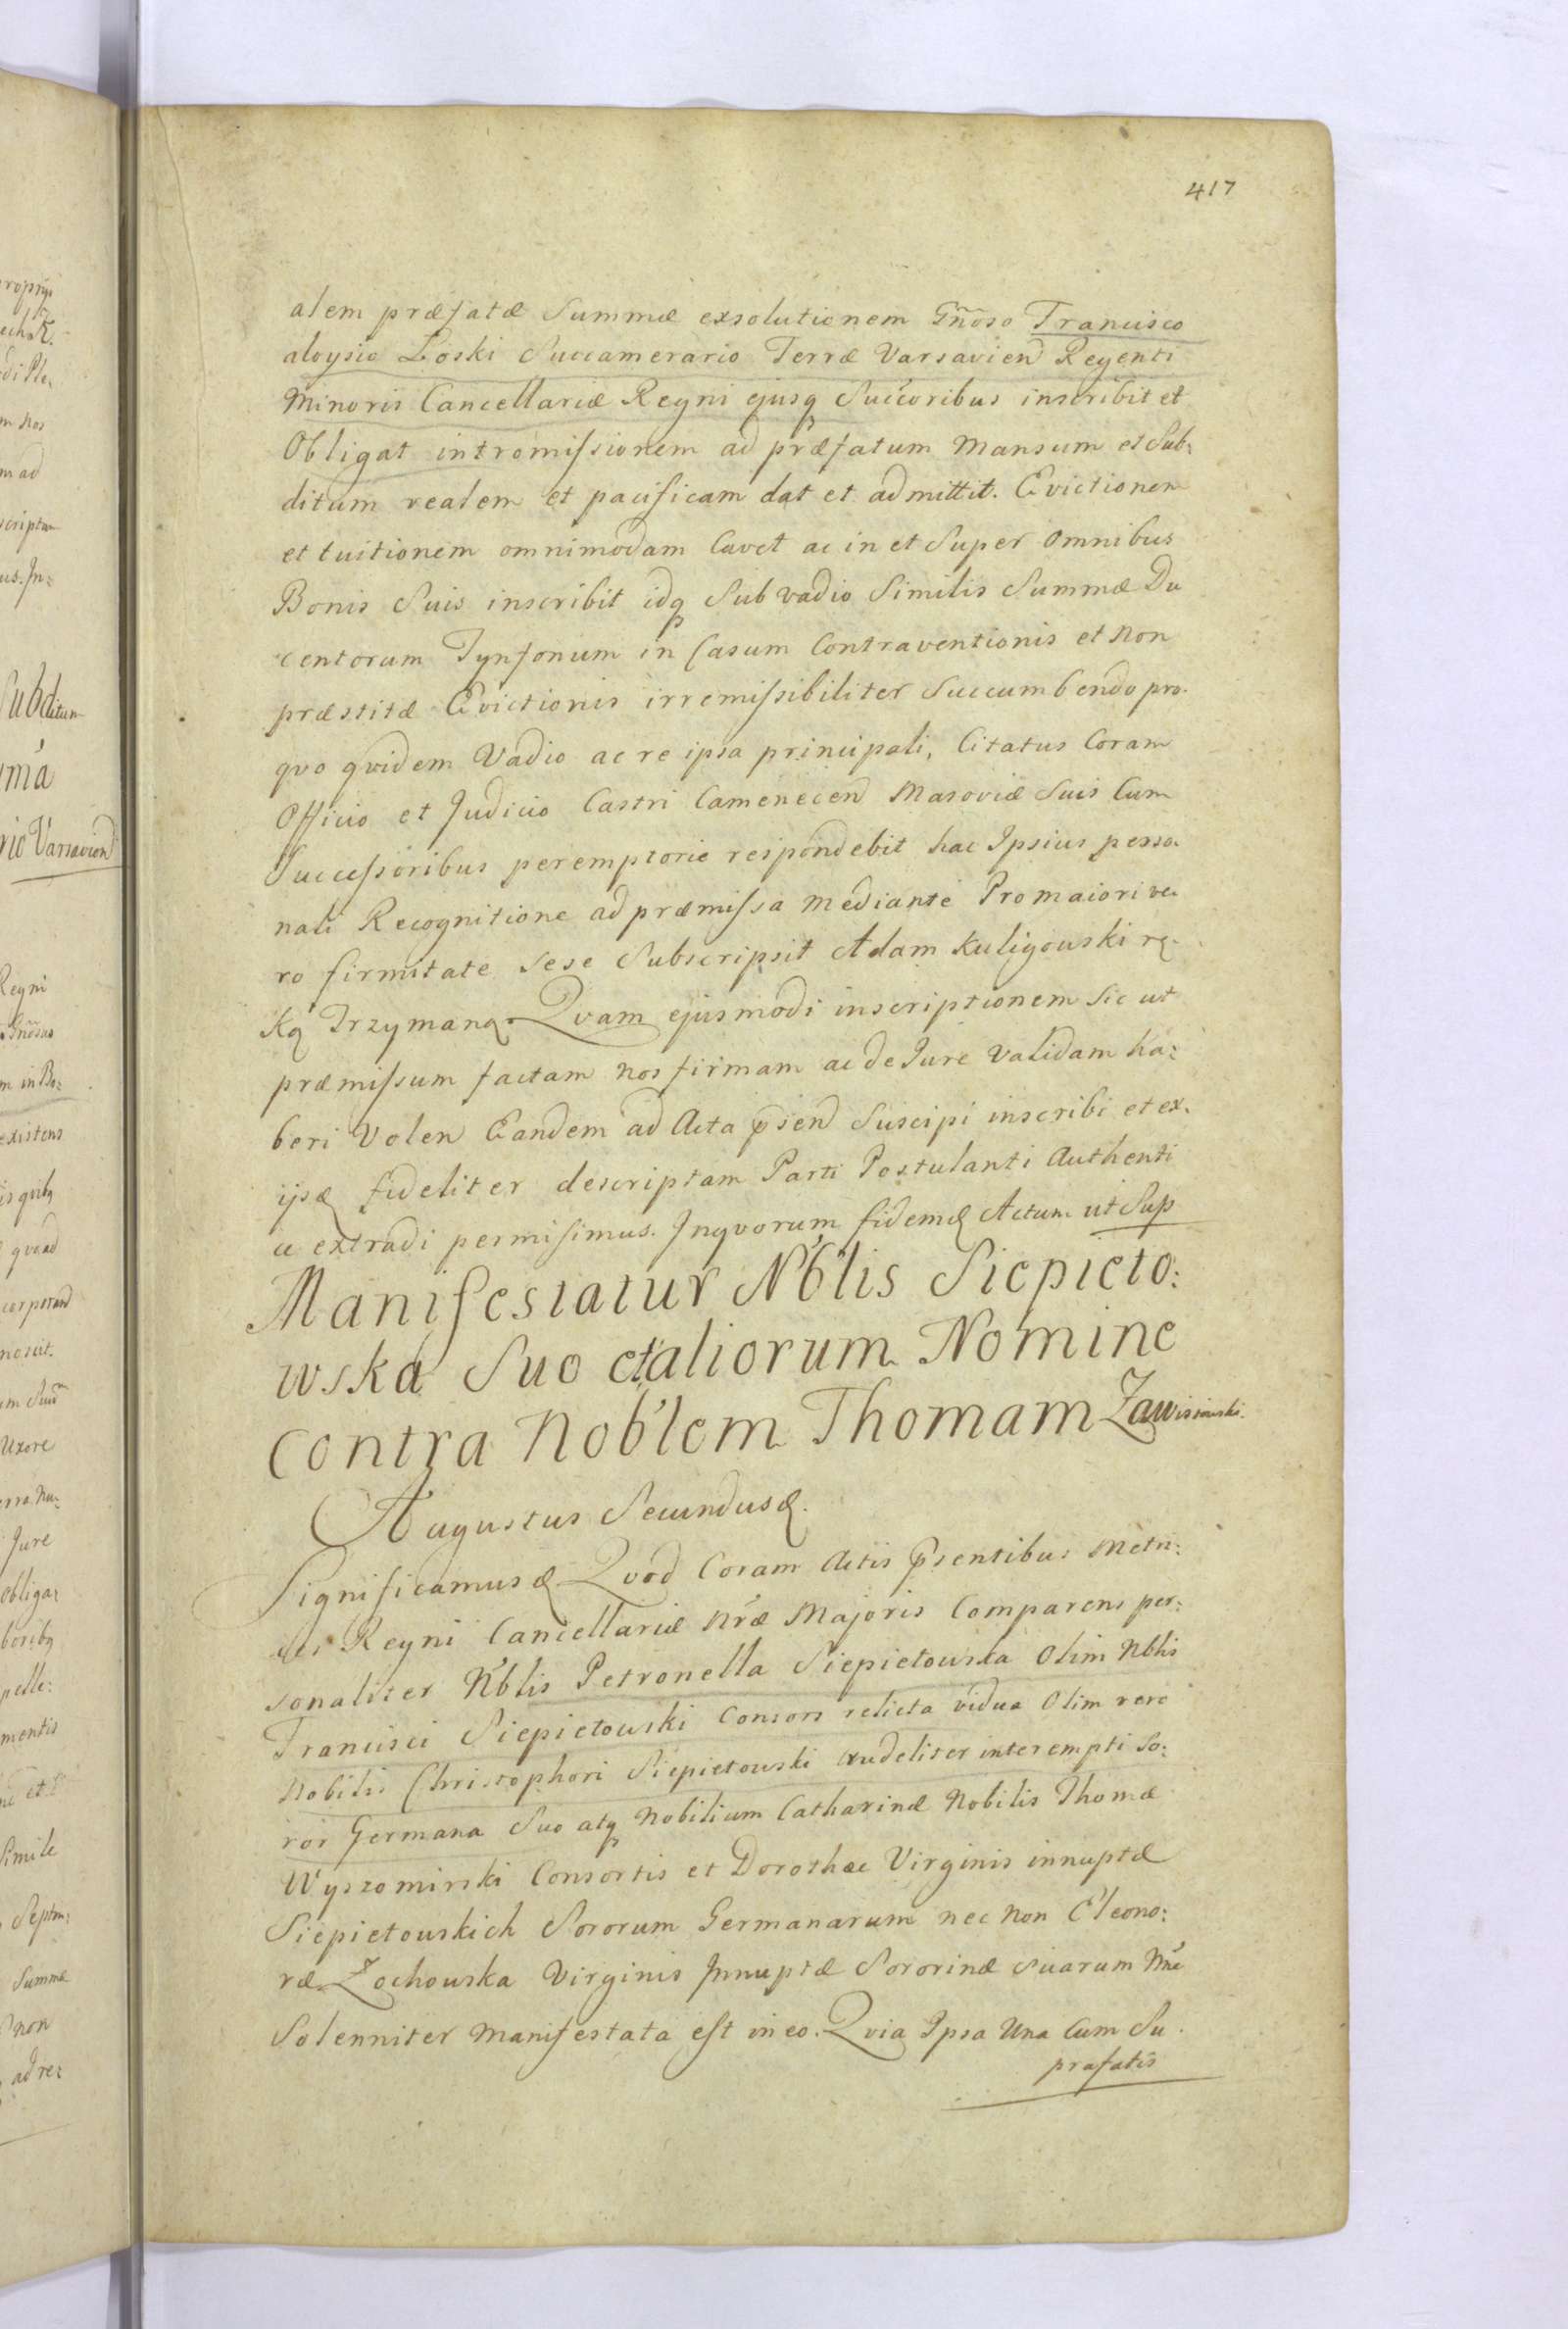 417
alem præfatæ Summæ exsolutionem Gñoso Francisco
aloysio Loski Succamerario Terræ Varsavien Regenti
Minoris Cancellariæ Regni ejusq Succoribus inscribit et
Obligat intromissionem ad præfatum Mansum et Sub:
ditum realem et pacificam dat et admittit. Evictionem
et tuitionem omnimodam Cavet ac in et Super Omnibus
Bonis Suis inscribit idq Sub vadio Similis Summæ Du
centorum Tynfonum in Casum Contraventionis et Non
præstitæ Evictionis irremissibiliter Succumbendo pro
quo quidem Vadio ac re ipsa principali, Citatus Coram
Officio et Judicio Castri Camenecen Masoviæ Suis Cum
Successoribus peremptorie respondebit hac Ipsius perso
nali Recognitione ad præmissa mediante Pro maiori ve
ro firmitate sese Subscripsit Adam Kuligowski rę
ką Trzymaną. Quam ejusmodi inscriptionem Sic ut
præmissum factam nos firmam ac de Jure Validam ha:
beri Volen Eandem ad Acta psen Suscipi inscribi et ex
ijsq fideliter descriptam Parti Postulanti Authenti
ce extradi permisimus. Inquorum fidem Actum ut Sup
Manifestatur Nblis Siepieto:
wska Suo et aliorum Nomine
Contra Noblem Thomam Zawissowski.
Augustus Secundus
Significamus Quod Coram Actis psentibus Metri:
ces Regni Cancellariæ Nræ Majoris Comparens per:
sonaliter Nblis Petronella Siepietowska Olim Nblis
Francisci Siepietowski Consors relicta vidua Olim vero
Nobilis Christophori Siepietowski crudeliter interempti So:
ror Germana Suo atq Nobilium Catharinæ Nobilis Thomæ
Wyszomirski Consortis et Dorotheæ Virginis innuptæ
Siepietowskich Sororum Germanarum nec non Eleono:
ræ Zochowska Virginis Innuptæ Sororinæ Suarum Nne
Solenniter Manifestata est in eo. Quia Ipsa Una Cum Su
prafatis